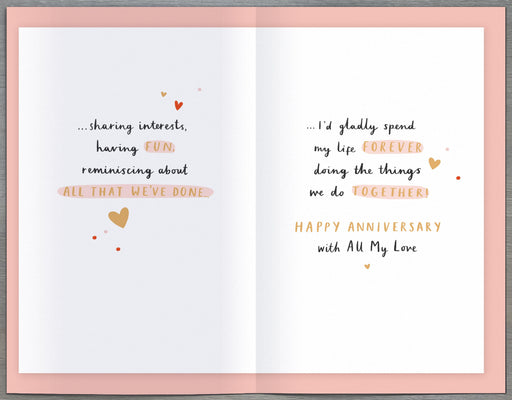 ...sharing interests,
having FUN,
reminiscing about
ALL THAT WE'VE DONE...
...I'd gladly spend
my life FOREVER
doing the things
we do TOGETHER!
HAPPY ANNIVERSARY
with All My Love